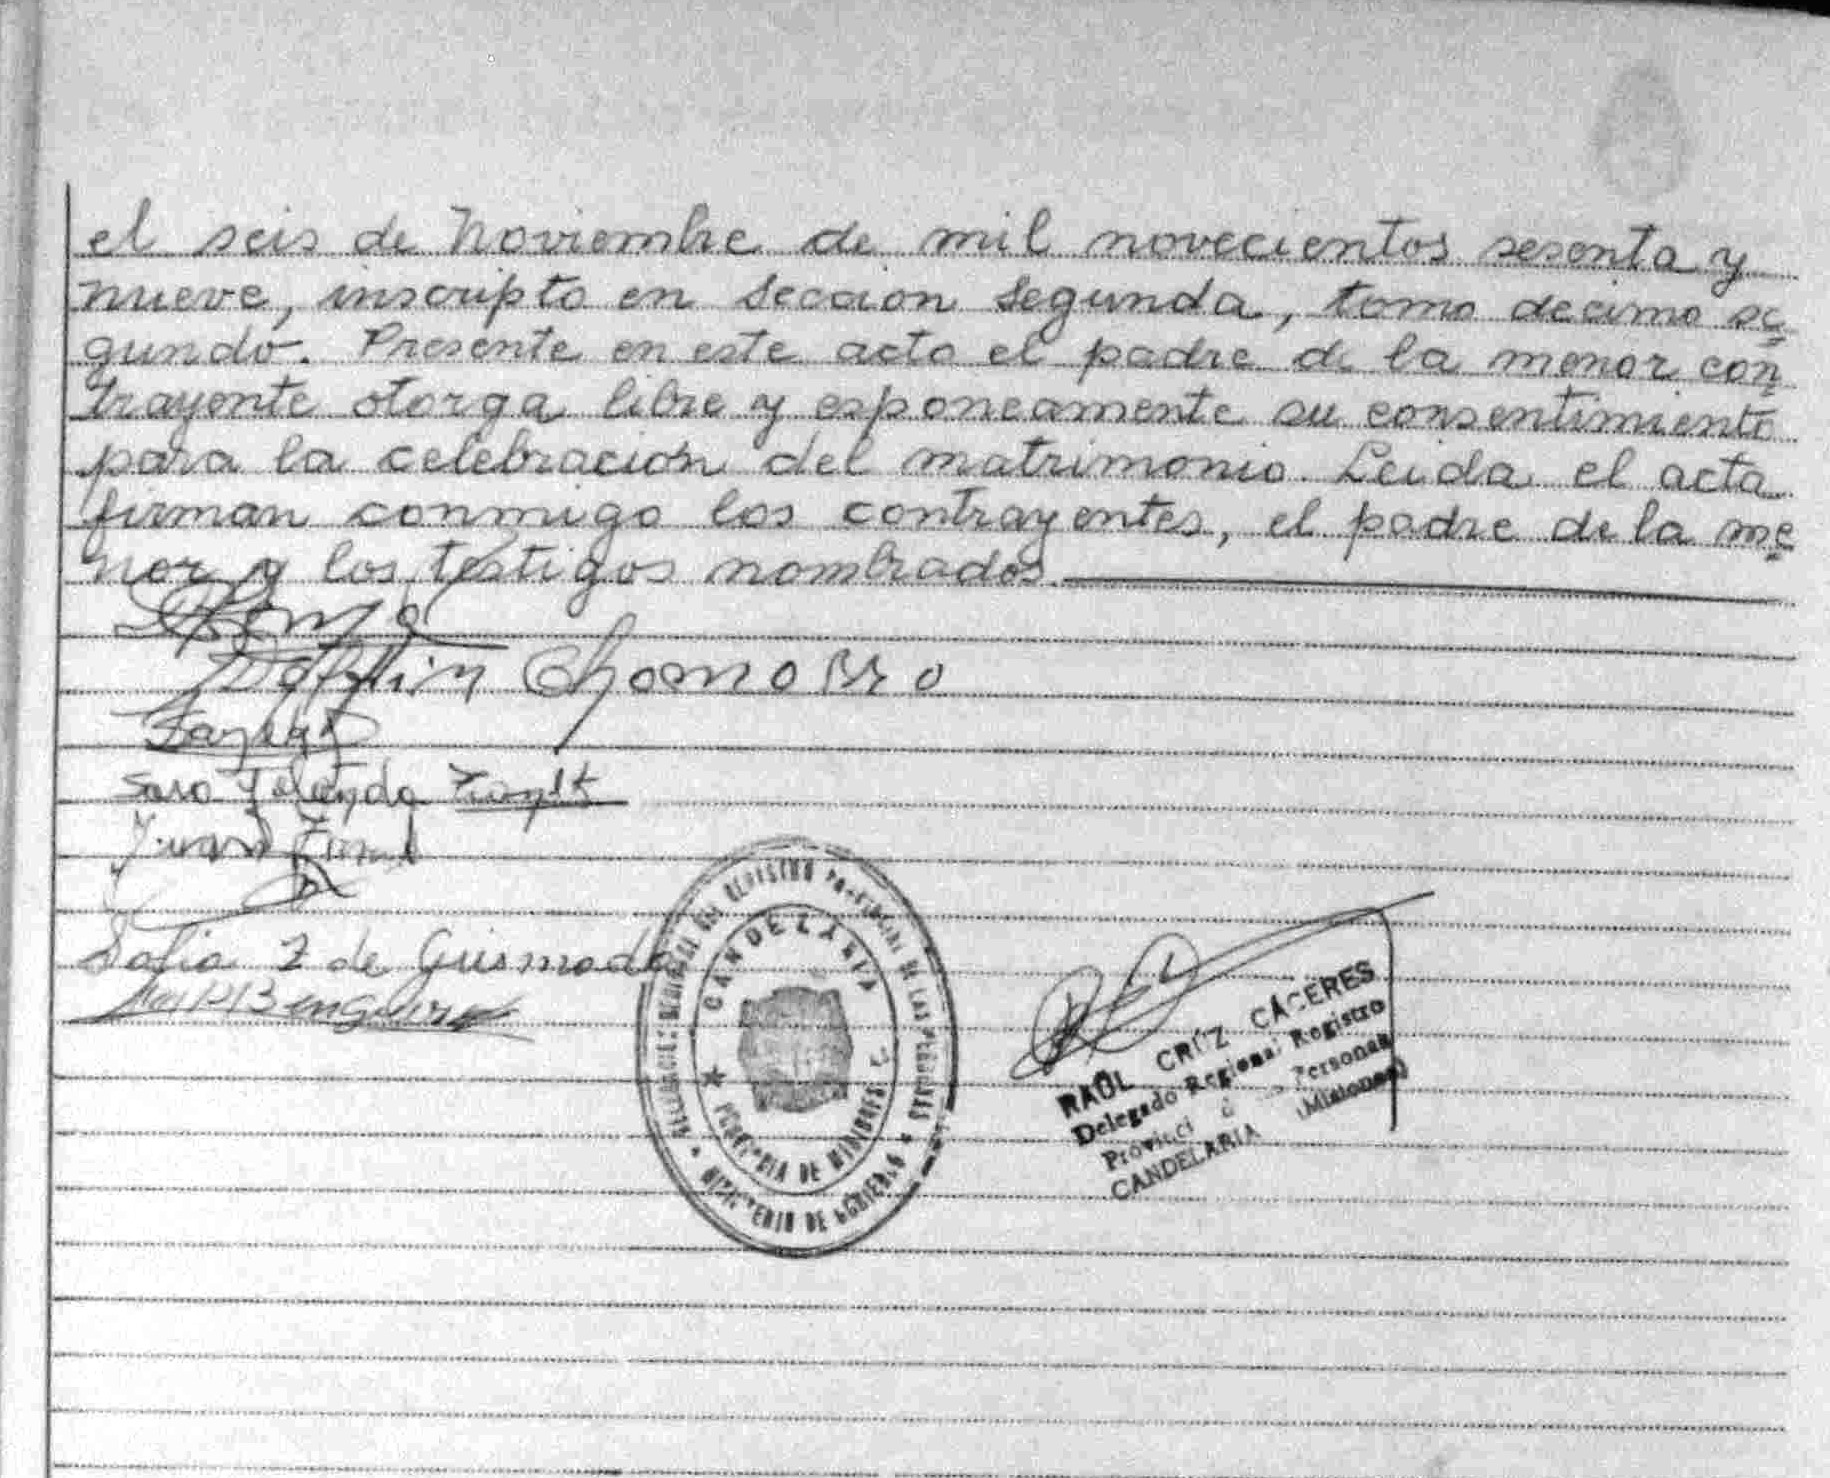 el seis de Noviembre de mil novecientos sesenta y
nueve, inscripto en sección segunda, tomo decimo se
gundo. Presente en este acto el padre de la menor con
trayente otorga libre y esponeamente su consentimiento
para la celebración del matrimonio. Leida el acta
firman conmigo los contrayentes, el padre de la me
nor y los testigos nombrados.
Chamorro
Sara Yolanda
Juan
Sofia Z de Guismada
CANDELARIA
REGISTRO PROVINCIAL DE LAS PERSONAS
DE MISIONES
MINISTERIO DE GOBIERNO
RAÚL CRUZ CÁCERES
Delegado Regional Registro
Personas
CANDELARIA (Misiones)